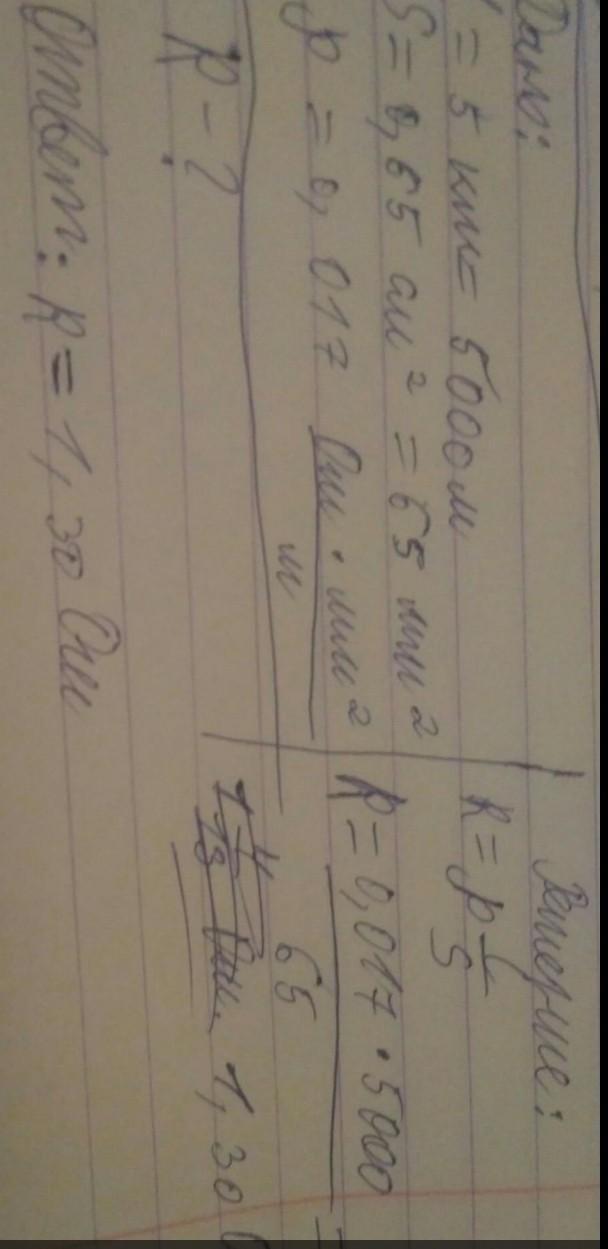 Дано:
l = 5 км = 5000 м
S = 0,65 см² = 65 мм²
р = 0,017 Ом · мм²
м
R - ?
Решение:
R = р l
S
R = 0,017 · 5000 =
65
1,30
Ответ: R = 1,30 Ом